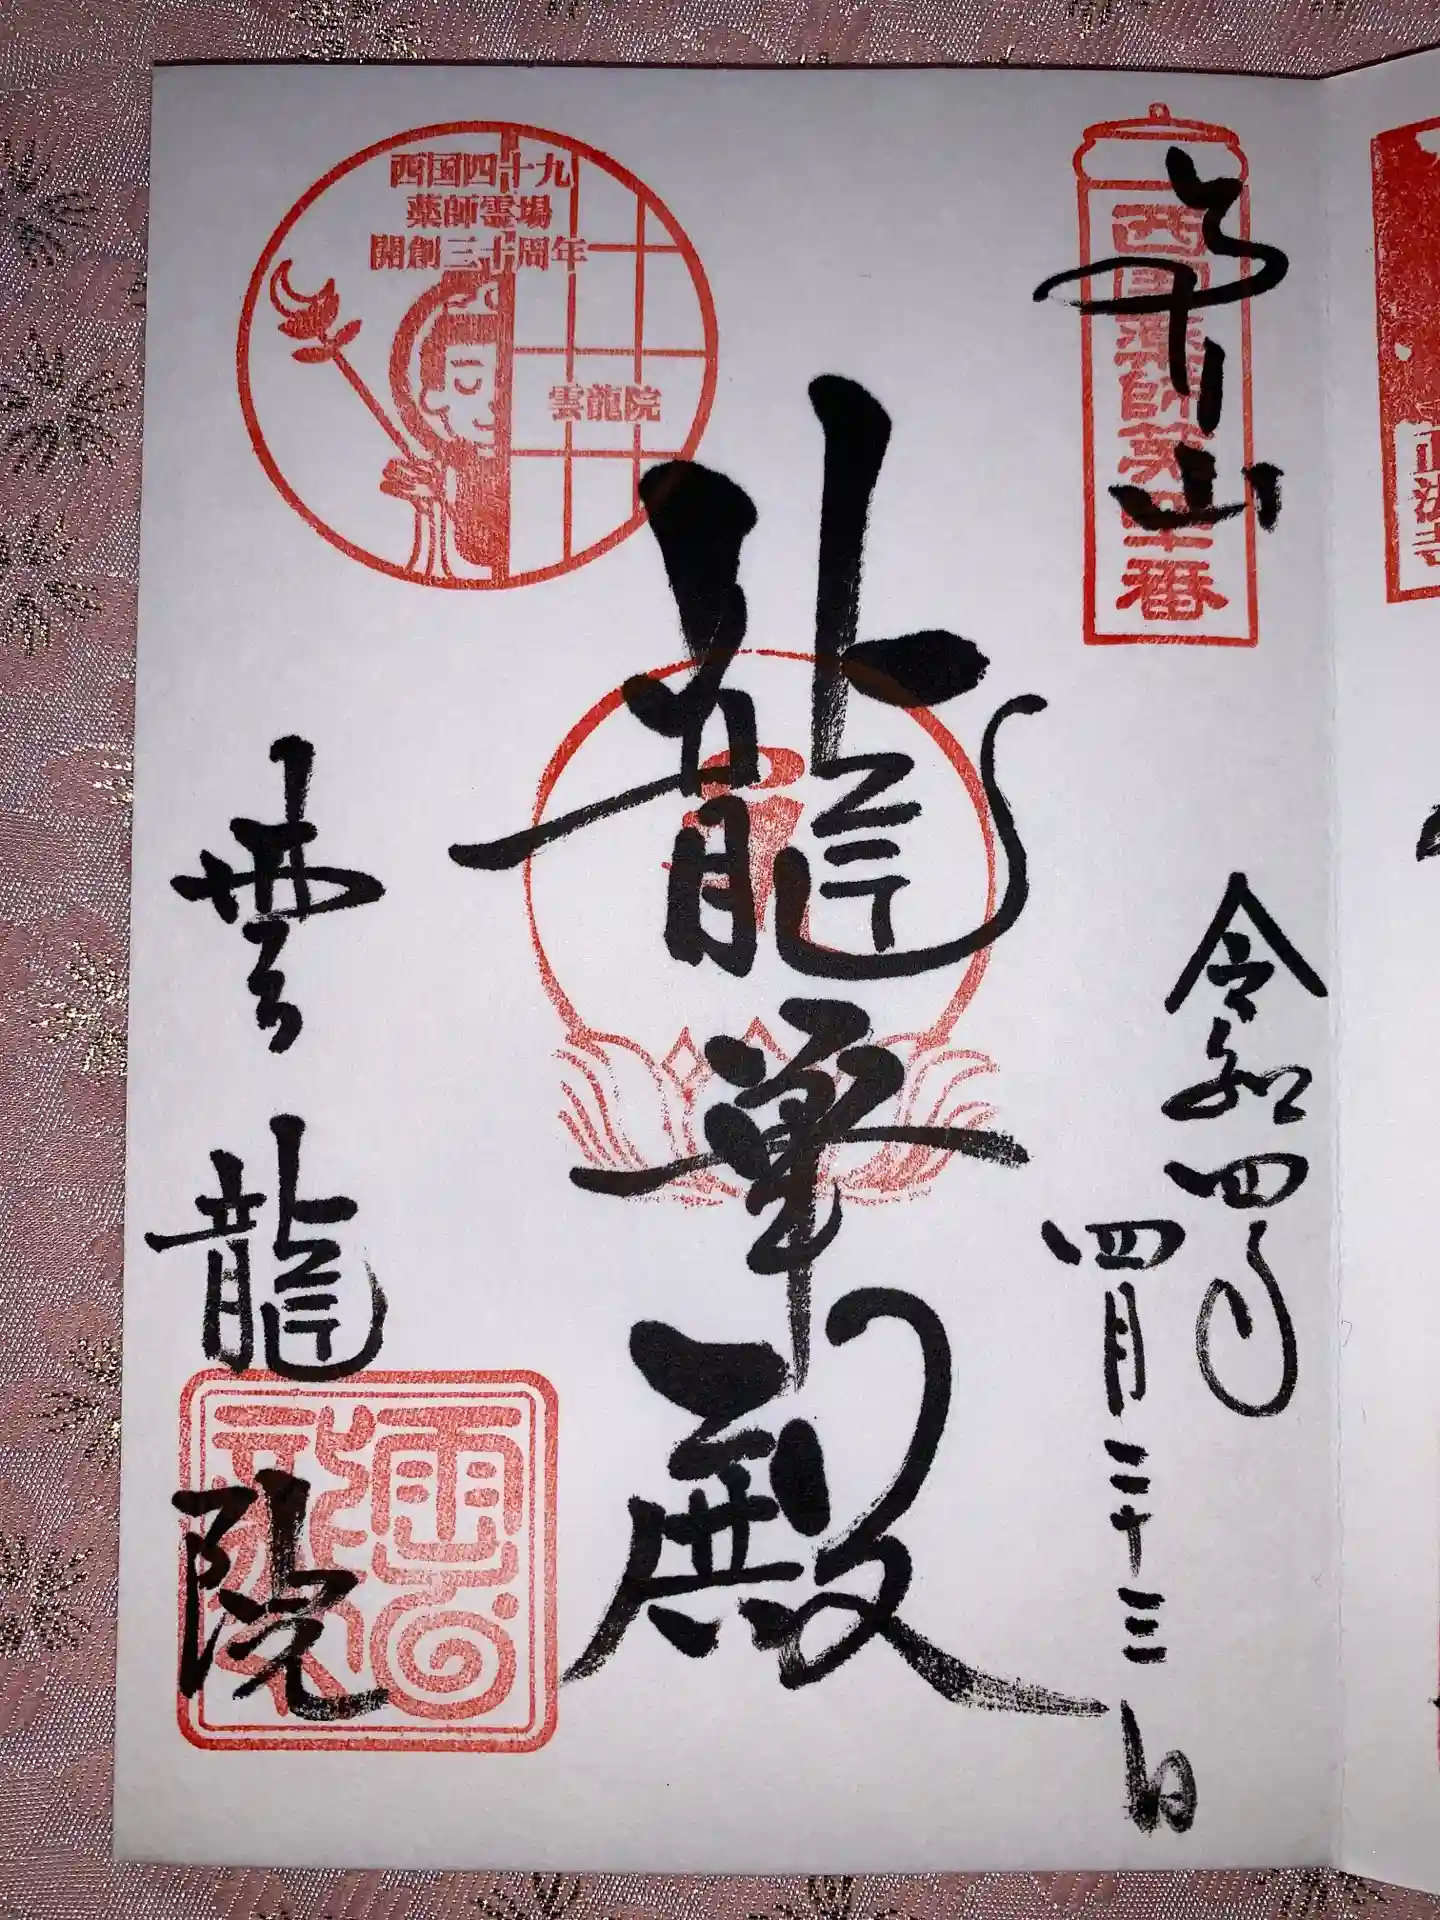 西国薬師第四十番
奉拝
山
令和四年
四月二十三日
龍華殿
西国四十九
薬師霊場
開創三十周年
雲龍院
雲龍院
雲龍
正法寺